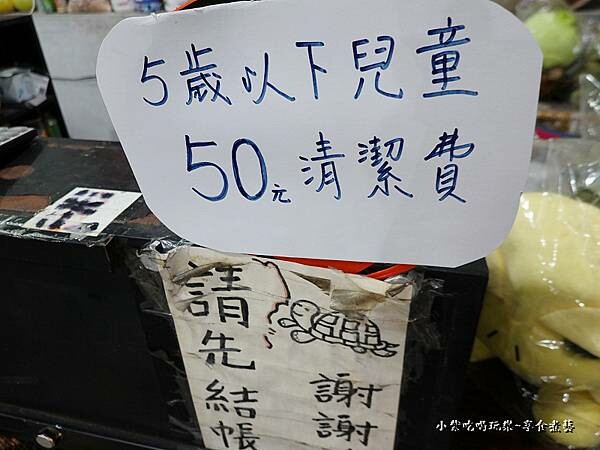 5歲以下兒童
50元清潔費
請先結帳
謝謝
小紫吃喝玩樂~享食煮藝